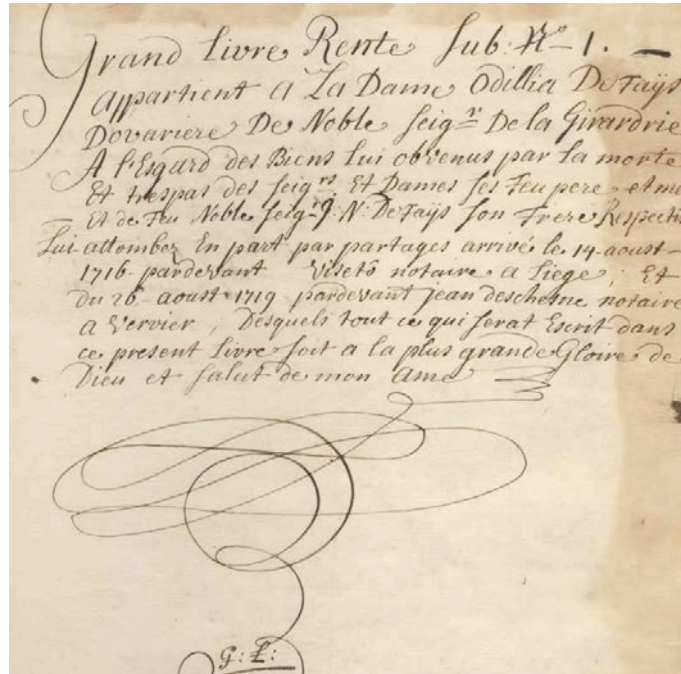 Grand Livre Rente Sub: No 1. —
Appartient A La Dame Odillia De Faÿs
Dovariere De Noble Seigr De la Girardrie
A l'Esgard des Biens Lui obvenus par la morte
Et trespas des Seigrs Et Dames Ses Feu pere et me
Et de Feu Noble Seigr g: N: De Faÿs Son Frere Respecti
Lui attombez En part par partages arrivé le 14 aoust –
1716 pardevant notaire a Liege ; Et
du 26 aoust 1719 pardevant jean deschesne notaire
a Vervier , Desquels tout ce qui Serat Escrit dans
ce present Livre soit a la plus grande Gloire de
Dieu et Salut de mon Ame
G: L: